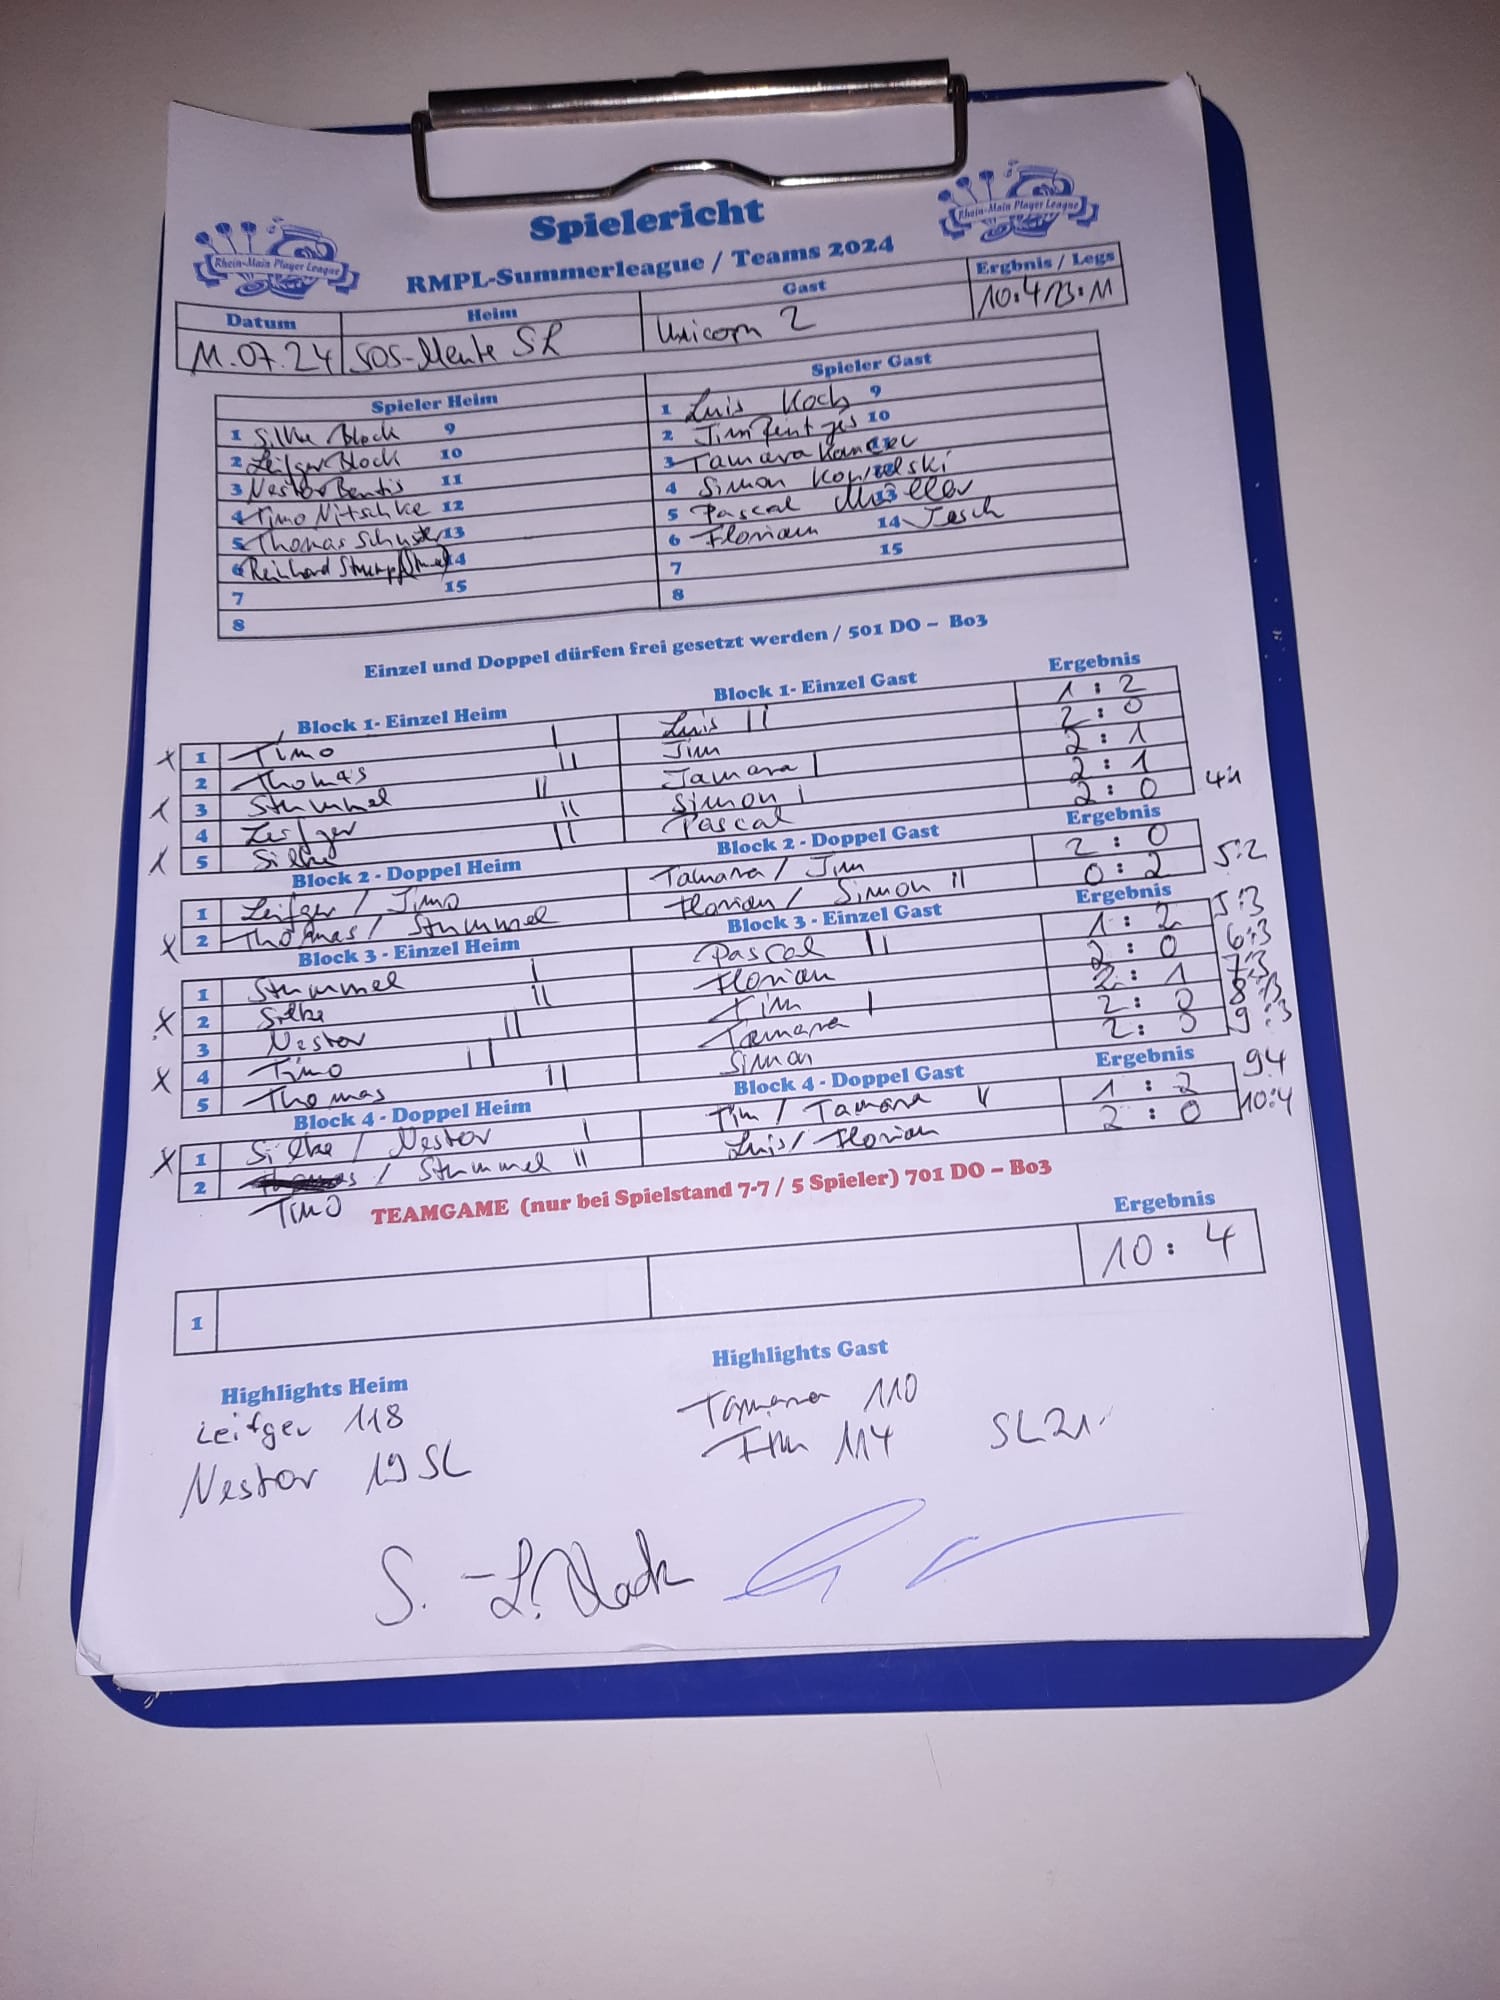 Spielericht
RMPL-Summerleague / Teams 2024
Rhein-Main Player League
Rhein-Main Player League
Datum Heim Gast Ergbnis / Legs
11.07.24 SOS-Meute SR Unicorn 2 10:4/23:11
Spieler Heim Spieler Gast
1 Silke Block 9 1 Luis Koch 9
2 Leifger Block 10 2 Tim 10
3 Nestor Bentis 11 3 Tamara
4 Timo Nitschke 12 4 Simon
5 Thomas Schuster 13 5 Pascal Müller 13
6 Reinhard Stumpf 14 6 Florian 14 Jesch
7 15 7 15
8 8
Einzel und Doppel dürfen frei gesetzt werden / 501 DO – Bo3
Block 1- Einzel Heim Block 1- Einzel Gast Ergebnis
x 1 Timo I Luis II 1 : 2
2 Thomas II Jim 2 : 0
x 3 Stummel II Tamara I 2 : 1
4 Leifger II Simon I 2 : 1
x 5 Silke II Pascal 2 : 0 4:1
Block 2 - Doppel Heim Block 2 - Doppel Gast Ergebnis
1 Leifger / Timo Tamara / Jim 2 : 0
x 2 Thomas / Stummel Florian / Simon II 0 : 2 5:2
Block 3 - Einzel Heim Block 3 - Einzel Gast Ergebnis
1 Stummel I Pascal II 1 : 2 5:3
x 2 Silke II Florian 2 : 0 6:3
3 Nestor II Tim I 2 : 1 7:3
x 4 Timo II Tamara 2 : 0 8:3
5 Thomas II Simon 2 : 0 9:3
Block 4 - Doppel Heim Block 4 - Doppel Gast Ergebnis
x 1 Silke / Nestor I Tim / Tamara II 1 : 2 9:4
2 / Stummel II Luis / Florian 2 : 0 10:4
Timo
TEAMGAME (nur bei Spielstand 7-7 / 5 Spieler) 701 DO – Bo3
Ergebnis
1 10 : 4
Highlights Heim Highlights Gast
Leifger 118 Tamara 110
Nestor 19 SL Tim 114 SL21
S. -L. Block